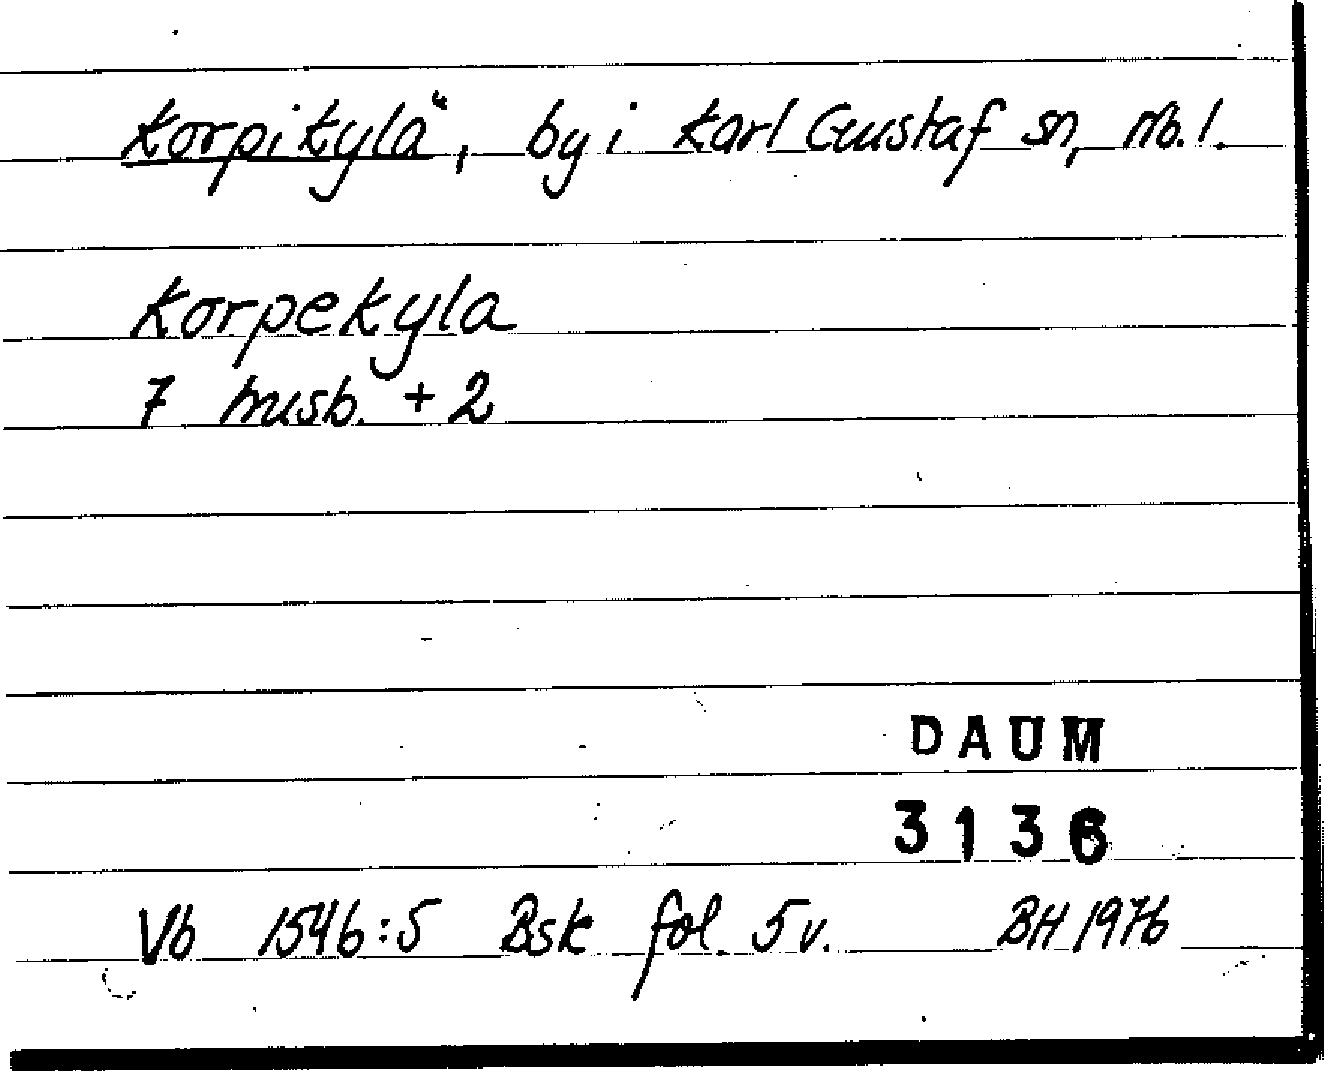 Korpikylä, by i Karl Gustaf sn, Nb. l.
Korpekyla
7 husb. + 2
DAUM
3136
Vb 1546:5 Bsk fol. 5v. BH 1976